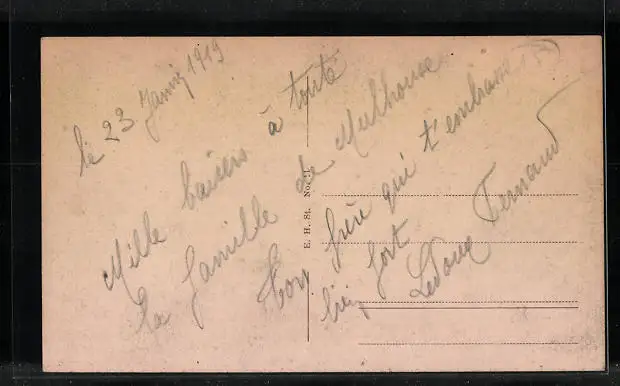 le 23 Janvij 1919
Mille baisers à toute
la famille de Mulhouse
Ton frère qui t'embrasse
bien fort
Ledoux Fernand
E. H. St. No.